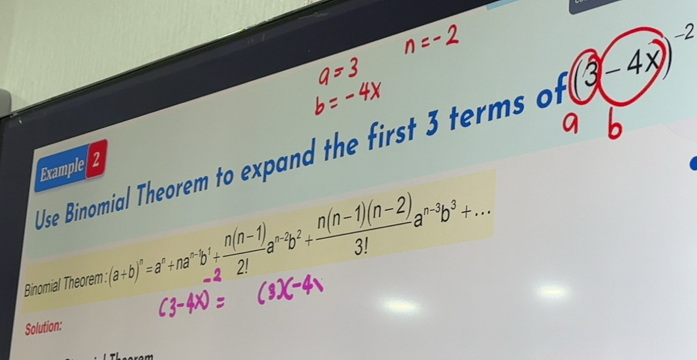 a = 3 n = -2
b = -4x
Example 2
Use Binomial Theorem to expand the first 3 terms of (3 - 4x)^-2
a b
Binomial Theorem : (a + b)^n = a^n + na^(n-1)b^1 + n(n-1)/2! a^(n-2)b^2 + n(n-1)(n-2)/3! a^(n-3)b^3 + ...
(3-4x)^-2 = (3)(-4x
Solution:
Theorem